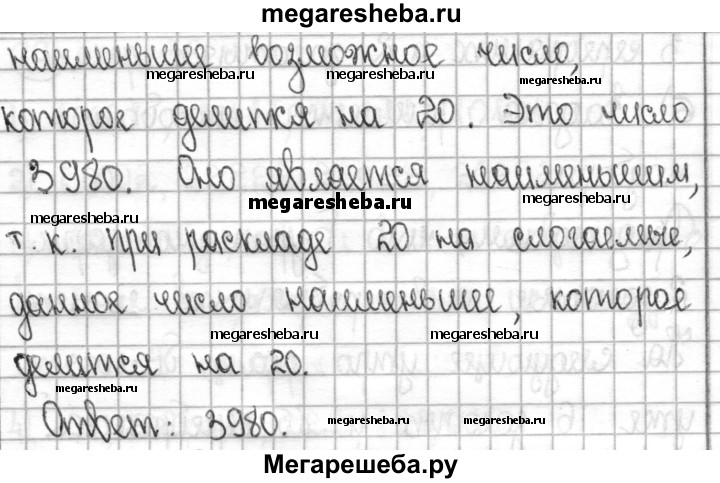 megaresheba.ru
наименьшее возможное число,
megaresheba.ru megaresheba.ru megaresheba.ru
которое делится на 20. Это число
megaresheba.ru megaresheba.ru megaresheba.ru
3980. Оно является наименьшим,
megaresheba.ru megaresheba.ru megaresheba.ru
т. к. при раскладе 20 на слогаемые,
данное число наименьшее, которое
megaresheba.ru megaresheba.ru
делится на 20.
megaresheba.ru
Ответ: 3980.
megaresheba.ru megaresheba.ru
Мегарешеба.ру